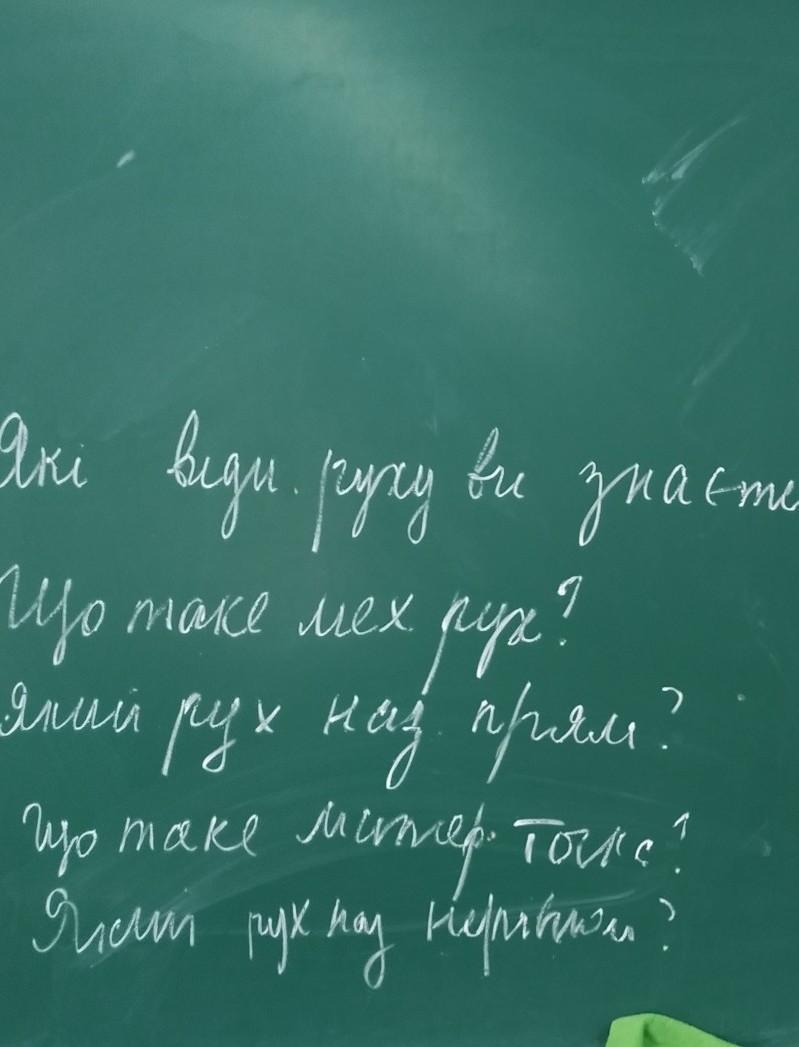 Які види руху ви знаєте
Що таке мех рух?
Який рух наз. прям?
Що таке матер. точка?
Який рух наз нерівном?